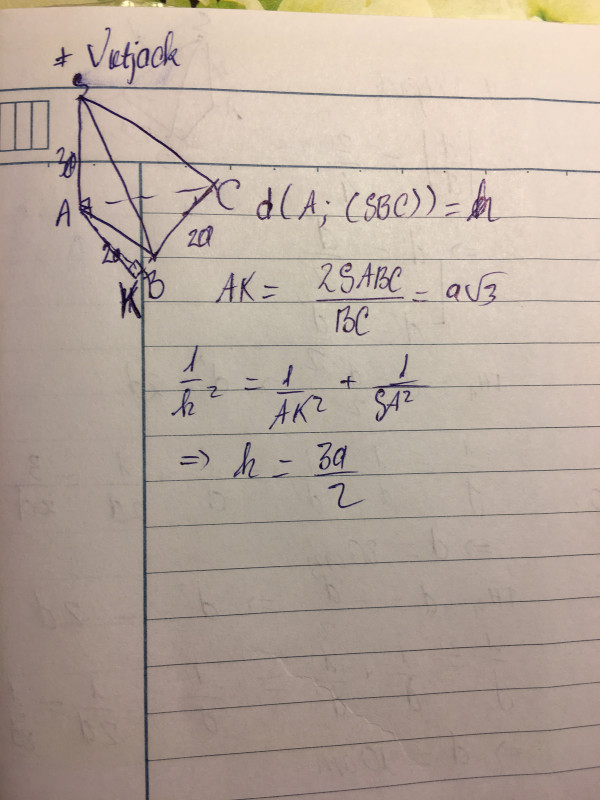 * Vietjack
S
3a
A
C
2a
2a
K B
d(A; (SBC)) = h
AK = 2SABC / BC = a√3
1/h² = 1/AK² + 1/SA²
=> h = 3a/2